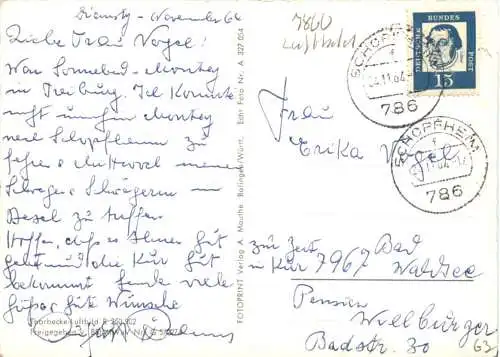 Dienstag - November 64
Liebe Frau Vogel!
War Sonnabend - Montag
in Freiburg. Ich konnte
Montag
nach Schopfheim zu
fahren meinen
Schwager & Schwägerin
Basel zu treffen
Hoffen, dass es Ihnen gut
geht und die Kur gut
bekommt. Sende viele
Grüsse gute Wünsche
Fabrbecke Luftbild B
Freigegeben
FOTOPRINT Verlag A. Mauthe Balingen/Württ. Echt Foto Nr. A 327 054
7860
Luftbild
DEUTSCHE BUNDES POST
15
SCHOPFHEIM
24.11.64
786
SCHOPFHEIM
786
Frau
Erika Vogel
zur Zeit Bad
in Kur 7967 Waldsee
Pension
Willburger
Badstr. 30
63